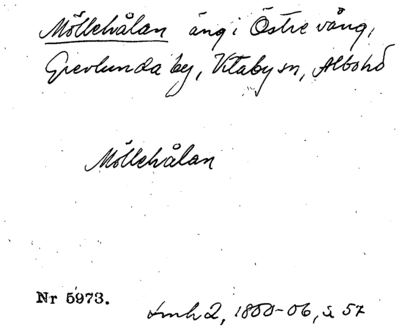 Möllehålan äng i Östre vång,
Grevlunda by, Vitaby sn, Albo hd
Möllehålan
Nr 5973.
Lmh 2, 1800-06, s 57